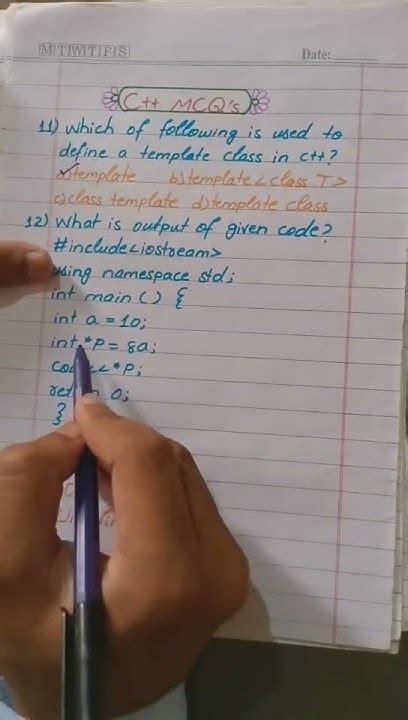 M T W T F S
Date:
C++ MCQ's
11) Which of following is used to
define a template class in C++?
a) template b) template < class T >
c) class template d) template class
12) What is output of given code?
#include<iostream>
using namespace std;
int main () {
int a = 10;
int *P = &a;
<< *P;
0;
}